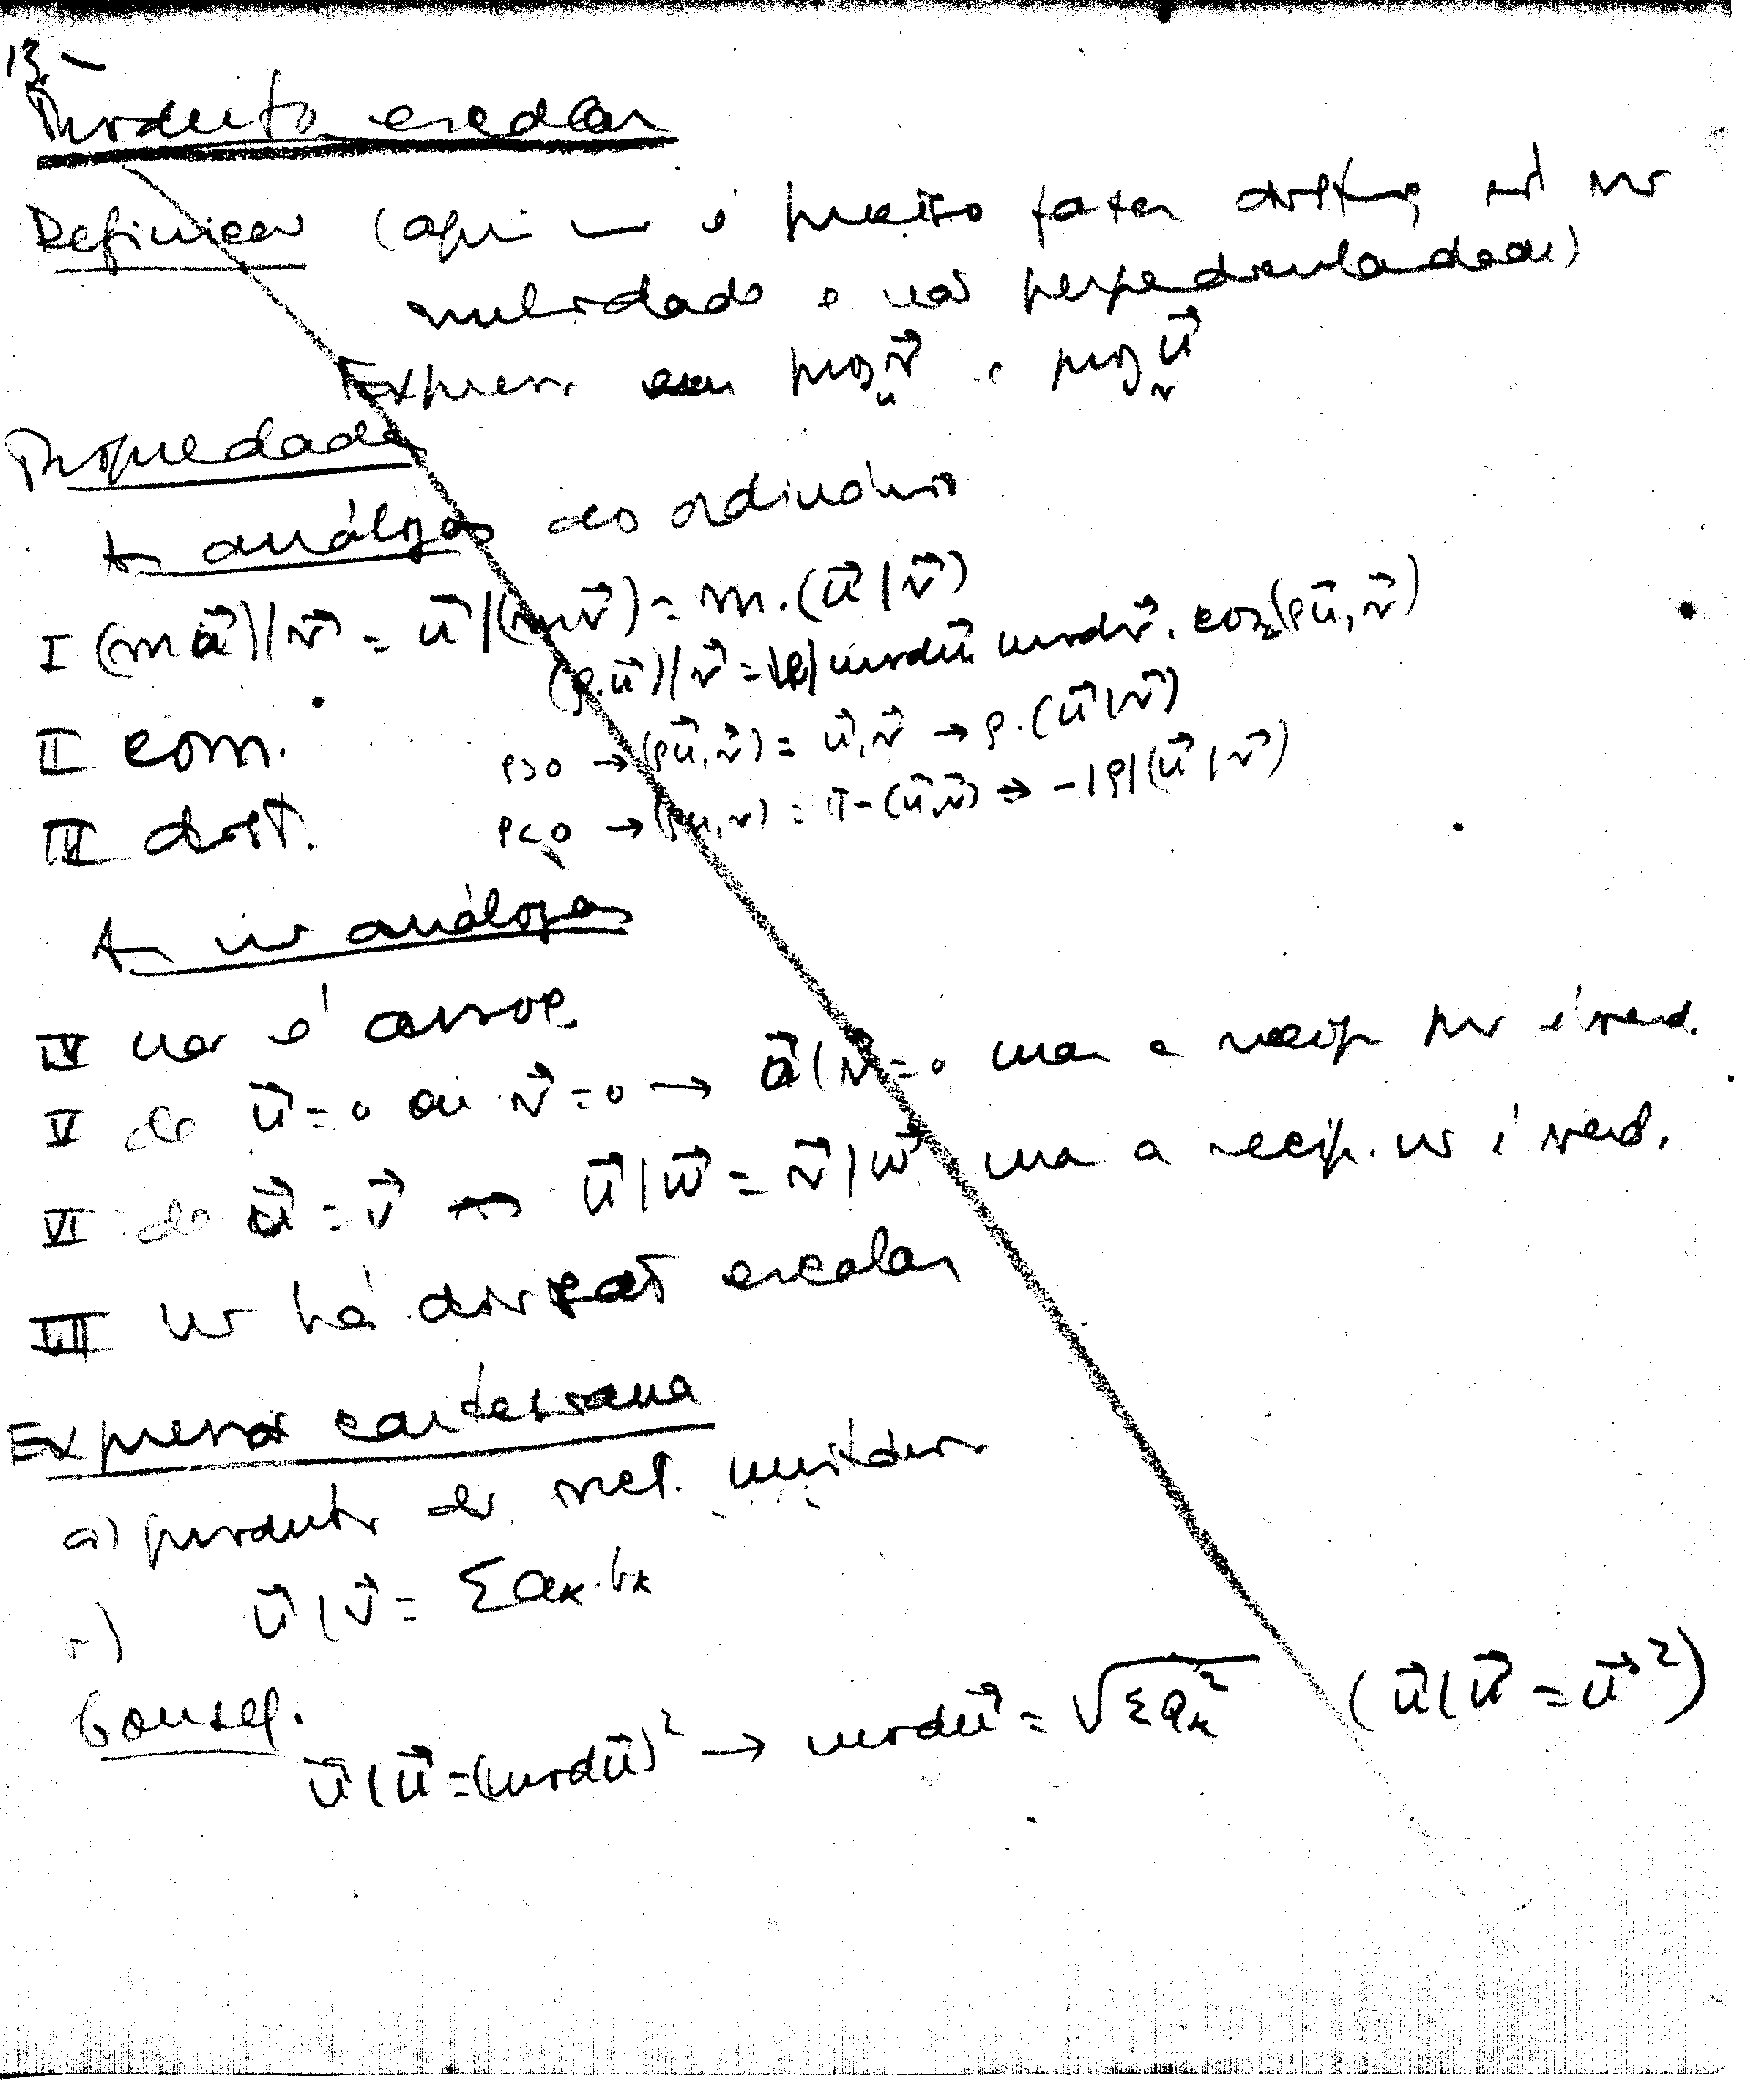 13 –
Produto escalar
Definicao (aqui nao é preciso fazer disting
nulidade e nao perpendicularidade)
Express. em proj_u v⃗ e proj_v u⃗
Propriedades
As análogas ao ordinário
I (m u⃗)|v⃗ = u⃗|(m v⃗) = m.(u⃗|v⃗)
(ρ.u⃗)|v⃗ = |ρ| mod u⃗. mod v⃗. cos(ρu⃗, v⃗)
II com.
ρ>0 → (ρu⃗, v⃗) = u⃗, v⃗ → ρ.(u⃗|v⃗)
III dist.
ρ<0 → (ρu, v) = π-(u⃗, v⃗) → -|ρ|(u⃗|v⃗)
As nao análogas
IV nao é assoc.
V de u⃗=0 ou v⃗=0 → u⃗|v⃗=0 mas a recip nao é verd.
VI de u⃗ = v⃗ → u⃗|w⃗ = v⃗|w⃗ mas a recip. nao é verd.
VII nao há divisao escalar
Expressao cartesiana
a) produto de vect. unitários
b) u⃗|v⃗ = Σ a_k.b_k
Conseq.
u⃗|u⃗ = (mod u⃗)² → mod u⃗ = √Σa_k² (u⃗|u⃗ = u⃗²)